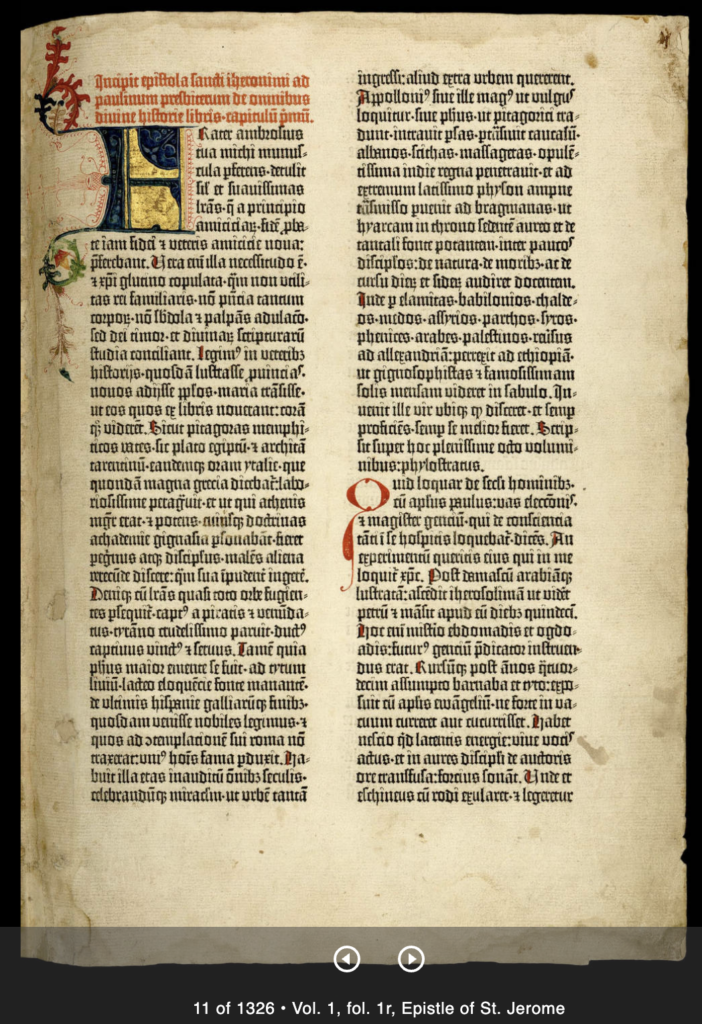 Incipit epistola sancti iheronimi ad
paulinum presbiterum de omnibus
divine historie libris·capitulū pmū.
Frater ambrosius
tua michi munus-
cula pferens·detulit
sil' et suavissimas
lrās·q̄ a principio
amiciciaꝝ·fidē ꝓba-
te iam fidei ⁊ veteris amicicie nova:
pferebant. Vera eni illa necessitudo ē·
⁊ xpi glutino copulata·qm non utili-
tas rei familiaris·nō pn̄cia tantum
corpoꝝ·nō sbdola ⁊ palpās adulaco·
sed dei timor·et divinaꝝ scripturarū
studia conciliant. Legimꝰ in veteribꝫ
historijs·quosdā lustrasse ꝓvinciaſ·
novos adijsse pplos·maria trāsisse·
ut eos quos ex libris noverant: corā
qꝫ viderēt. Sicut pitagoras memphi-
ticos vates·sic plato egiptū·⁊ architā
tarentinū·eandemqꝫ oram ytalie·que
quondā magna grecia dicebat̄: labo-
riosissime peragvit·et ut qui athenis
mgr̄ erat·⁊ potens·cuiusqꝫ doctrinas
achademie gignasia psonabāt·fieret
pegrinus atqꝫ discipulus·malēs aliena
verecunde discere: qm̄ sua īpudent̄ ingerē.
Deniqꝫ cū lrās quasi toto orbe fugien-
tes psequit̄·captꝰ a piratis ⁊ venūda-
tus·tyrāno crudelissimo paruit·ductꝰ
captivus vinctꝰ ⁊ servus. Tamē quia
phus maior emente se fuit·ad tytum
liviū·lacteo eloquētie fonte manantē·
de ultimis hispanie galliarūqꝫ finibꝫ·
quosdam venisse nobiles legimus·⁊
quos ad ɔtemplacionē sui roma nō
traxerat: uniꝰ hoīs fama pduxit. Ha-
buit illa etas inauditū om̄ibꝫ seculis·
celebrandūqꝫ miraclm·ut urbē tantā
ingressi: aliud extra urbem quererent.
Appolloniꝰ sive ille magꝰ ut vulguſ
loquitur·sive phus·ut pitagorici tra-
dunt·intravit psas·ptransivit caucasū·
albanos·scithas·massagetas·opulē-
tissima indie regna penetravit·et ad
extremum latissimo physon ampne
trāsmisso pvenit ad bragmanas·ut
hyarcam in throno sedētē aureo et de
tantali fonte potantem·inter paucoſ
discipl'os: de natura·de moribꝫ·ac de
cursu dieꝝ et sideꝝ audiret docentem.
Inde p elamitas·babilonios·chalde-
os·medos·assyrios·parthos·syros·
phenices·arabes·palestinos·reūsus
ad allexandriā: perrexit ad ethiopiā·
ut gignosophistas ⁊ famosissimam
solis mensam videret in sabulo. In-
venit ille vir ubiqꝫ qd disceret·et semp
proficiēs·semp se melior fieret. Scrip-
sit super hoc plenissime octo volumi-
nibus: phylostratus.
Quid loquar de secli hominibꝫ·
cū aplus paulus: vas electōnis·
⁊ magister genciū·qui de consciencia
tāti ī se hospitis loquebat̄·dicēs. An
experimentū queritis eius qui in me
loquit̄ xpc. Post damascū arabiāqꝫ
lustratā: ascēdit iherosolimā ut vidēt
petrū ⁊ māsit apud eū diebꝫ quindeci.
Hoc eni misterio ebdomadis et ogdo-
adis: futurꝰ genciū pdicator instruen-
dus erat. Rursūqꝫ post ānos qtuor-
decim assumpto barnaba et tyto: expo-
suit cū aplis ewāgeliū·ne forte in va-
cuum curreret aut cucurrisset. Habet
nescio qd latentis energie: vive vociſ
actus·et in aures discipli de auctoris
ore transfusa: forcius sonāt. Unde et
eschineus cū rodi exularet·⁊ legeretur
11 of 1326 • Vol. 1, fol. 1r, Epistle of St. Jerome